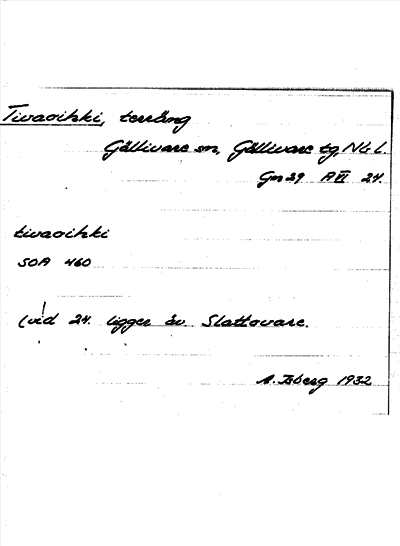 Tivaoihki, terräng
Gällivare sn, Gällivare tg, Nb l.
Gn 29 A VI 24.
tivaoihki
SOA 460
(vid 24. ligger äv. Slattovare.
A. Isberg 1932